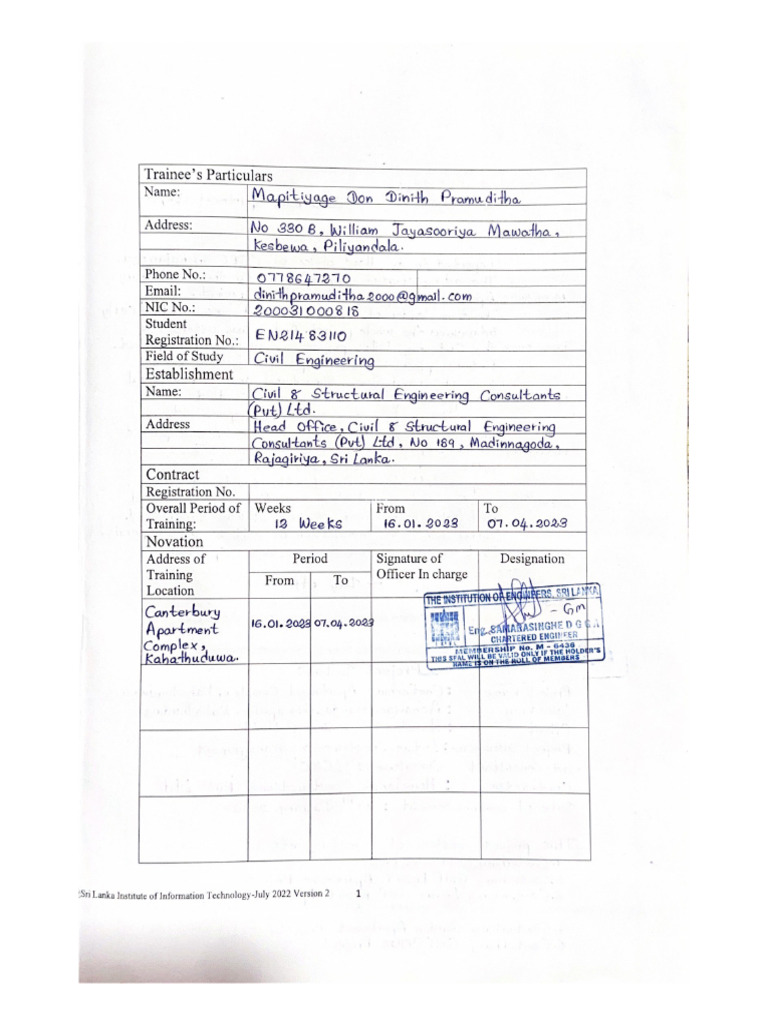 Trainee's Particulars
Name: Mapitiyage Don Dinith Pramuditha
Address: No 330 B, William Jayasooriya Mawatha,
Kesbewa, Piliyandala.
Phone No.: 0778647270
Email: dinithpramuditha2000@gmail.com
NIC No.: 200031000818
Student
Registration No.: EN21483110
Field of Study Civil Engineering
Establishment
Name: Civil & Structural Engineering Consultants
(Pvt) Ltd.
Address Head Office, Civil & Structural Engineering
Consultants (Pvt) Ltd, No 189, Madinnagoda,
Rajagiriya, Sri Lanka.
Contract
Registration No.
Overall Period of Weeks From To
Training: 12 Weeks 16.01.2023 07.04.2023
Novation
Address of Period Signature of Designation
Training From To Officer In charge
Location
Canterbury
Apartment
Complex,
Kahathuduwa.
16.01.2023 07.04.2023
THE INSTITUTION OF ENGINEERS, SRI LANKA
- GM
Eng. SAMARASINGHE D G G A
CHARTERED ENGINEER
MEMBERSHIP No. M - 6436
THIS SEAL WILL BE VALID ONLY IF THE HOLDER'S
NAME IS ON THE ROLL OF MEMBERS
Sri Lanka Institute of Information Technology-July 2022 Version 2 1